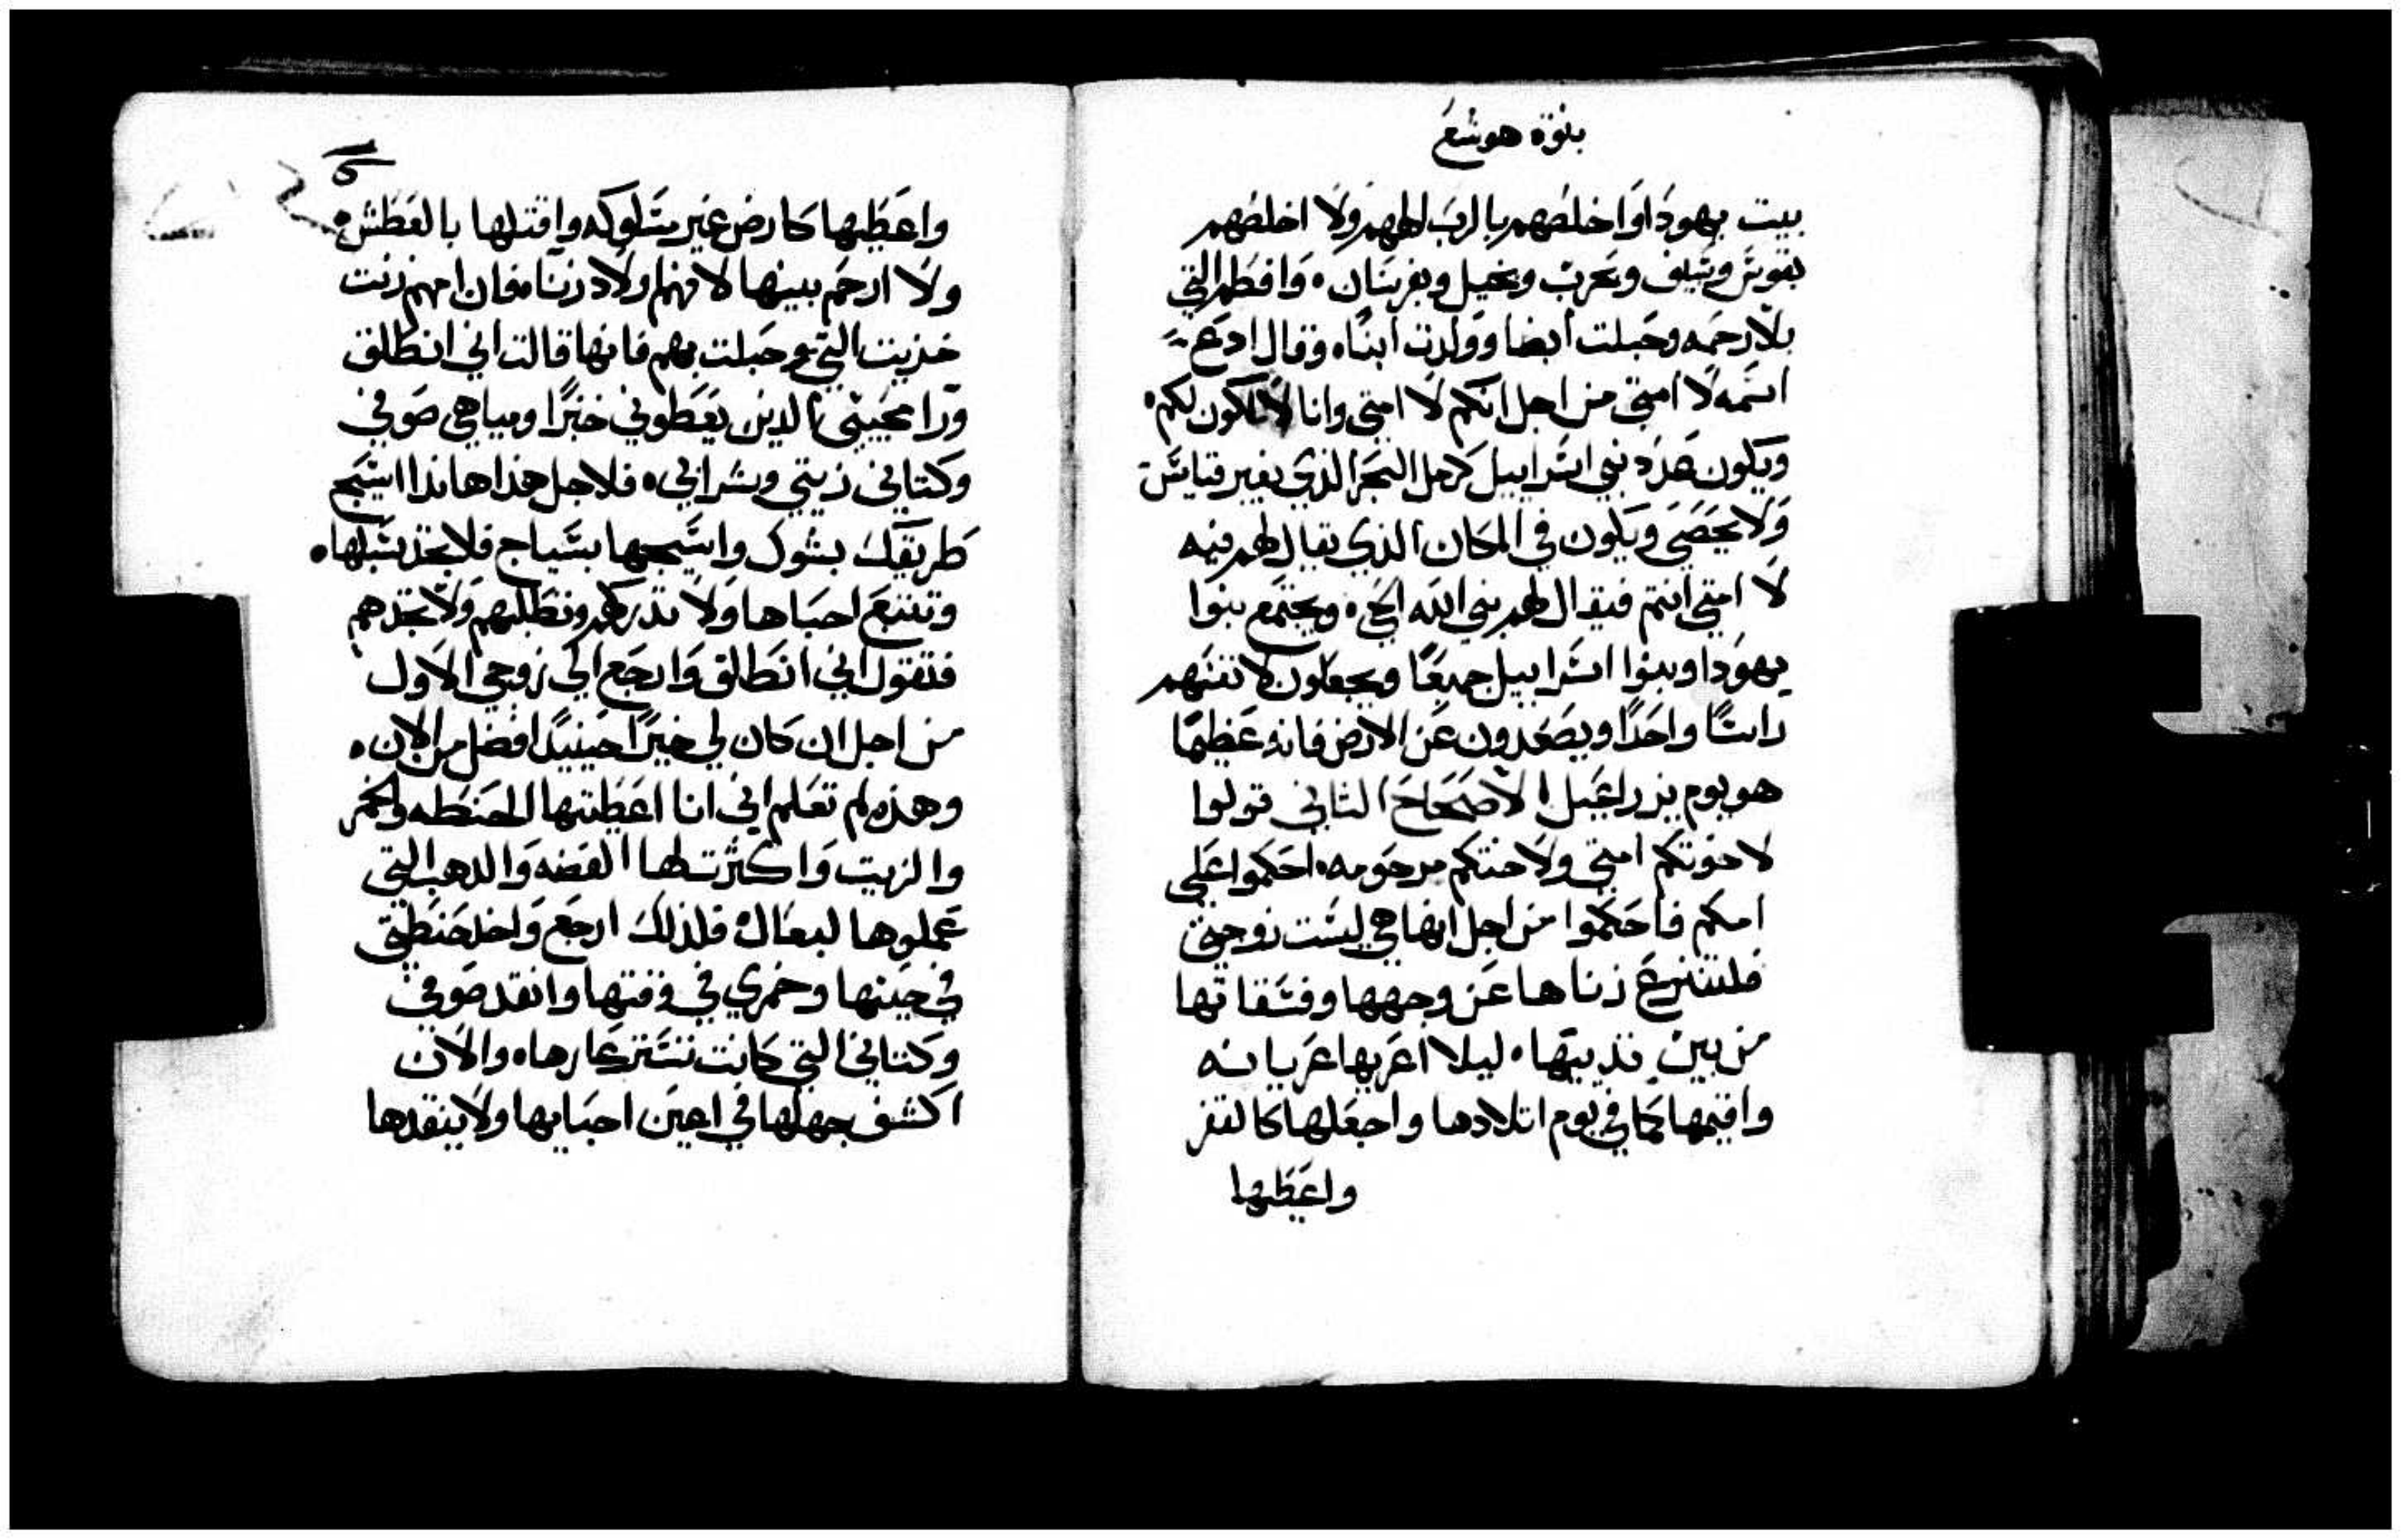 بنوة هوشع
بيت يهودا واخلصهم بالرب الههم ولا اخلصهم
بقوس وسيف وبحرب وبخيل وبفرسان. وافطم التي
بلا رحمه وحبلت ايضا وولدت ابنا. وقال ادع
اسمه لا امتي من اجل انكم لا امتي وانا لا اكون لكم.
ويكون عدد بني اسراييل كرمل البحر الذي بغير قياس
ولا يحصي ويكون في المكان الذي يقال لهم فيه
لا امتي انتم فيقال لهم بني الله الحي. ويجتمع بنوا
يهودا وبنوا اسراييل جميعا ويجعلون لانفسهم
راسا واحدا ويصعدون عن الارض فانه عظيما
هو يوم يزراعيل الاصحاح الثاني قولوا
لاخوتكم امتي ولاختكم مرحومه. احكموا علي
امكم فاحكموا من اجل انها هي ليست زوجتي
فلتنزع زناها عن وجهها وفسقاتها
من بين ثدييها. ليلا اعريها عريانه
واقيمها كما في يوم اتلادها واجعلها كالقفر
واعطيها
واعطيها كارض غير مسلوكه واقتلها بالعطش.
ولا ارحم بينها لانهم اولاد زنا. فان امهم زنت
خزيت التي حبلت بهم فانها قالت اني انطلق
ورا محبيني الذين يعطوني خبزا ومياهي صوفي
وكتاني زيتي وشرابي. فلاجل هذا هانذا اسيج
طريقك بشوك واسيجها بسياج فلا تجد سبلها.
وتتبع احباها ولا تدركهم وتطلبهم ولا تجدهم
فتقول اني انطلق وارجع الي زوجي الاول
من اجل ان كان لي خيرا حينيدا افضل من الان.
وهذه لم تعلم اني انا اعطيتها الحنطه والخمر
والزيت واكثرت لها الفضه والدهب التي
عملوها لبعال. فلذلك ارجع واخد حنطتي
في حينها وخمري في وقتها وانقد صوفي
وكتاني التي كانت تستر عارها. والان
اكشف جهلها في اعين احبايها ولا ينقدها